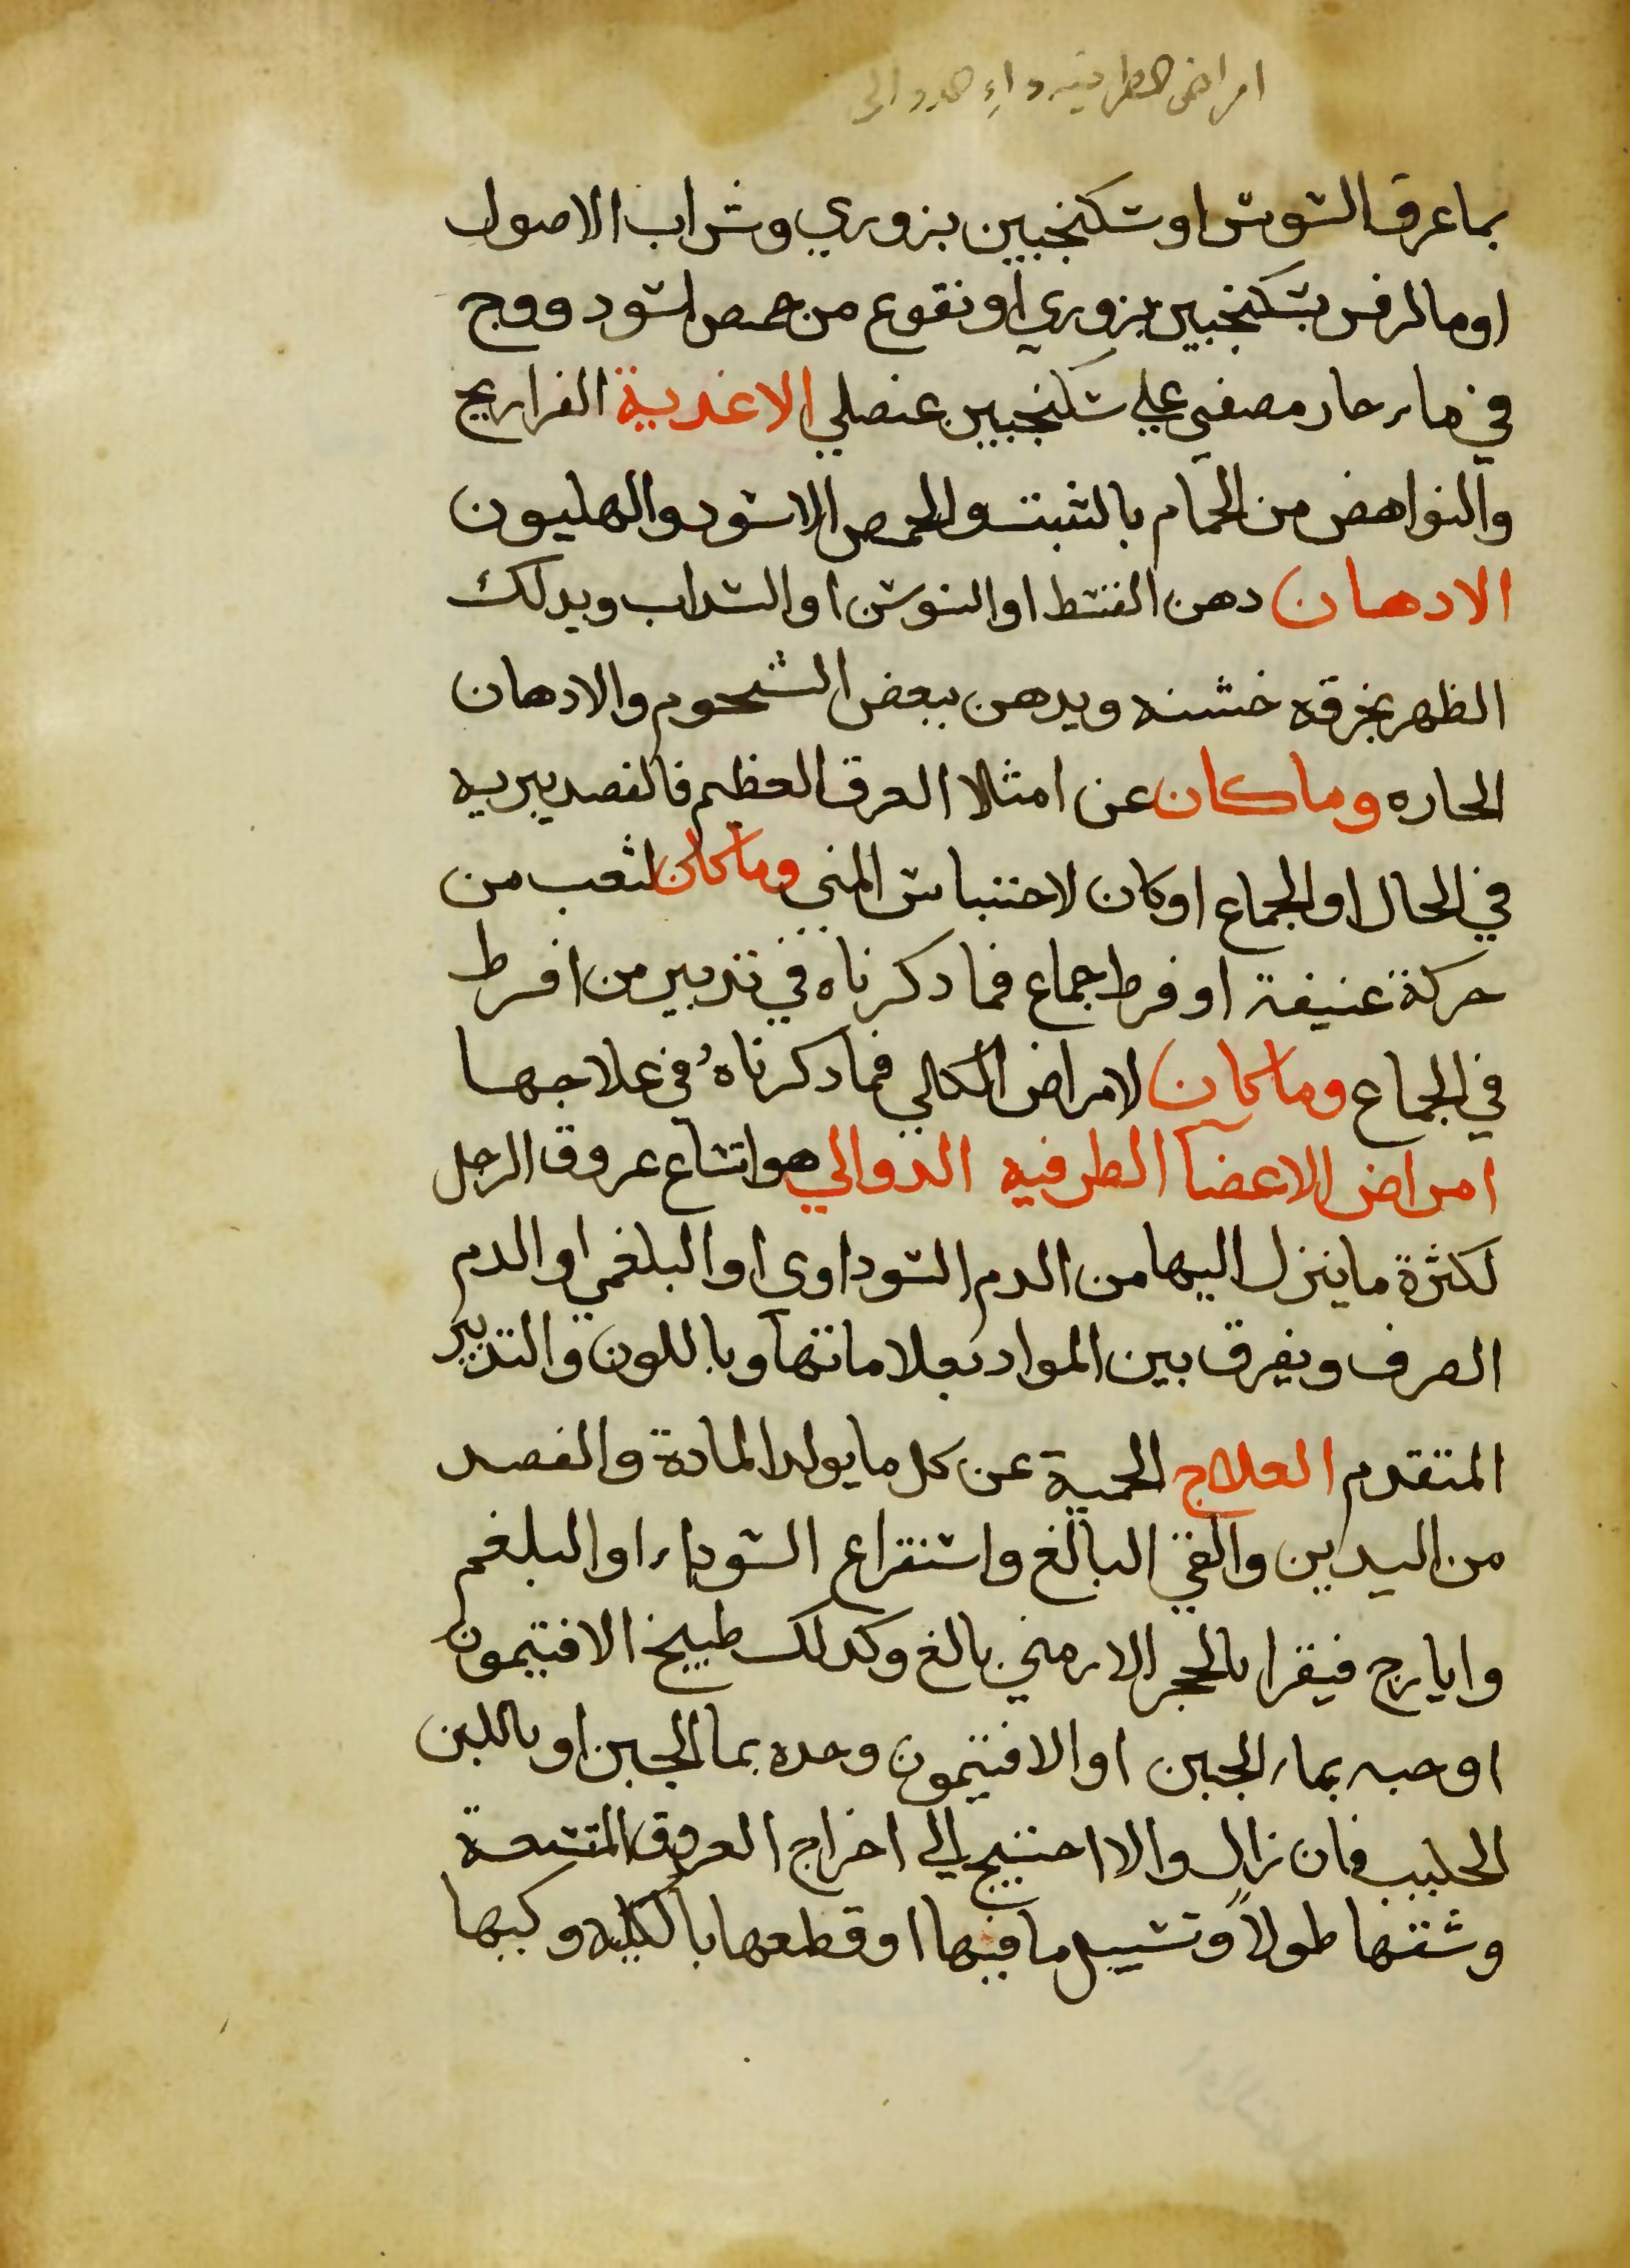 امراض الطرفيه داء الدوالى
بما عرق السوس او سكنجبين بزوري وشراب الاصول
او ما الرفس بسكنجبين بزوري او نقوع من حمص اسود ووج
في ماء حار مصفي علي سكنجبين عنصلي الاغدية الفراريج
والنواهض من الحمام بالشبت والحمص الاسود والهليون
الادهان دهن القسط او السوسن او السداب ويدلك
الظهر بخرقه خشنه ويدهن ببعض الشحوم والادهان
الحاره وما كان عن امتلا العرق العظيم فالفصد يبريه
في الحال او الجماع اوكان لاحتباس المني وما كان لتعب من
حركة عنيفة او فرط جماع فما دكرناه في تدبير من افرط
في الجماع وما كان لامراض الكلي فما دكرناه في علاجها
امراض الاعضا الطرفيه الدوالي هو اتساع عروق الرجل
لكثرة ما ينزل اليها من الدم السوداوى او البلغمي او الدم
الصرف ويفرق بين المواد بعلاماتها وباللون والتدبير
المتقدم العلاج الحمية عن كل ما يولد المادة والفصد
من اليدين والقي البالغ واستقراع السوداء او البلغم
وايارج فيقرا بالحجر الارمني بالغ وكدلك طبيخ الافتيمون
او حبه بماء الجبن او الافتيمون وحده بما الجبن او باللبن
الحليب فان زال والا احتيج الي اخراج العروق المتسعة
وشقها طولاً وتسييل ما فيها او قطعها بالكليه وكيها